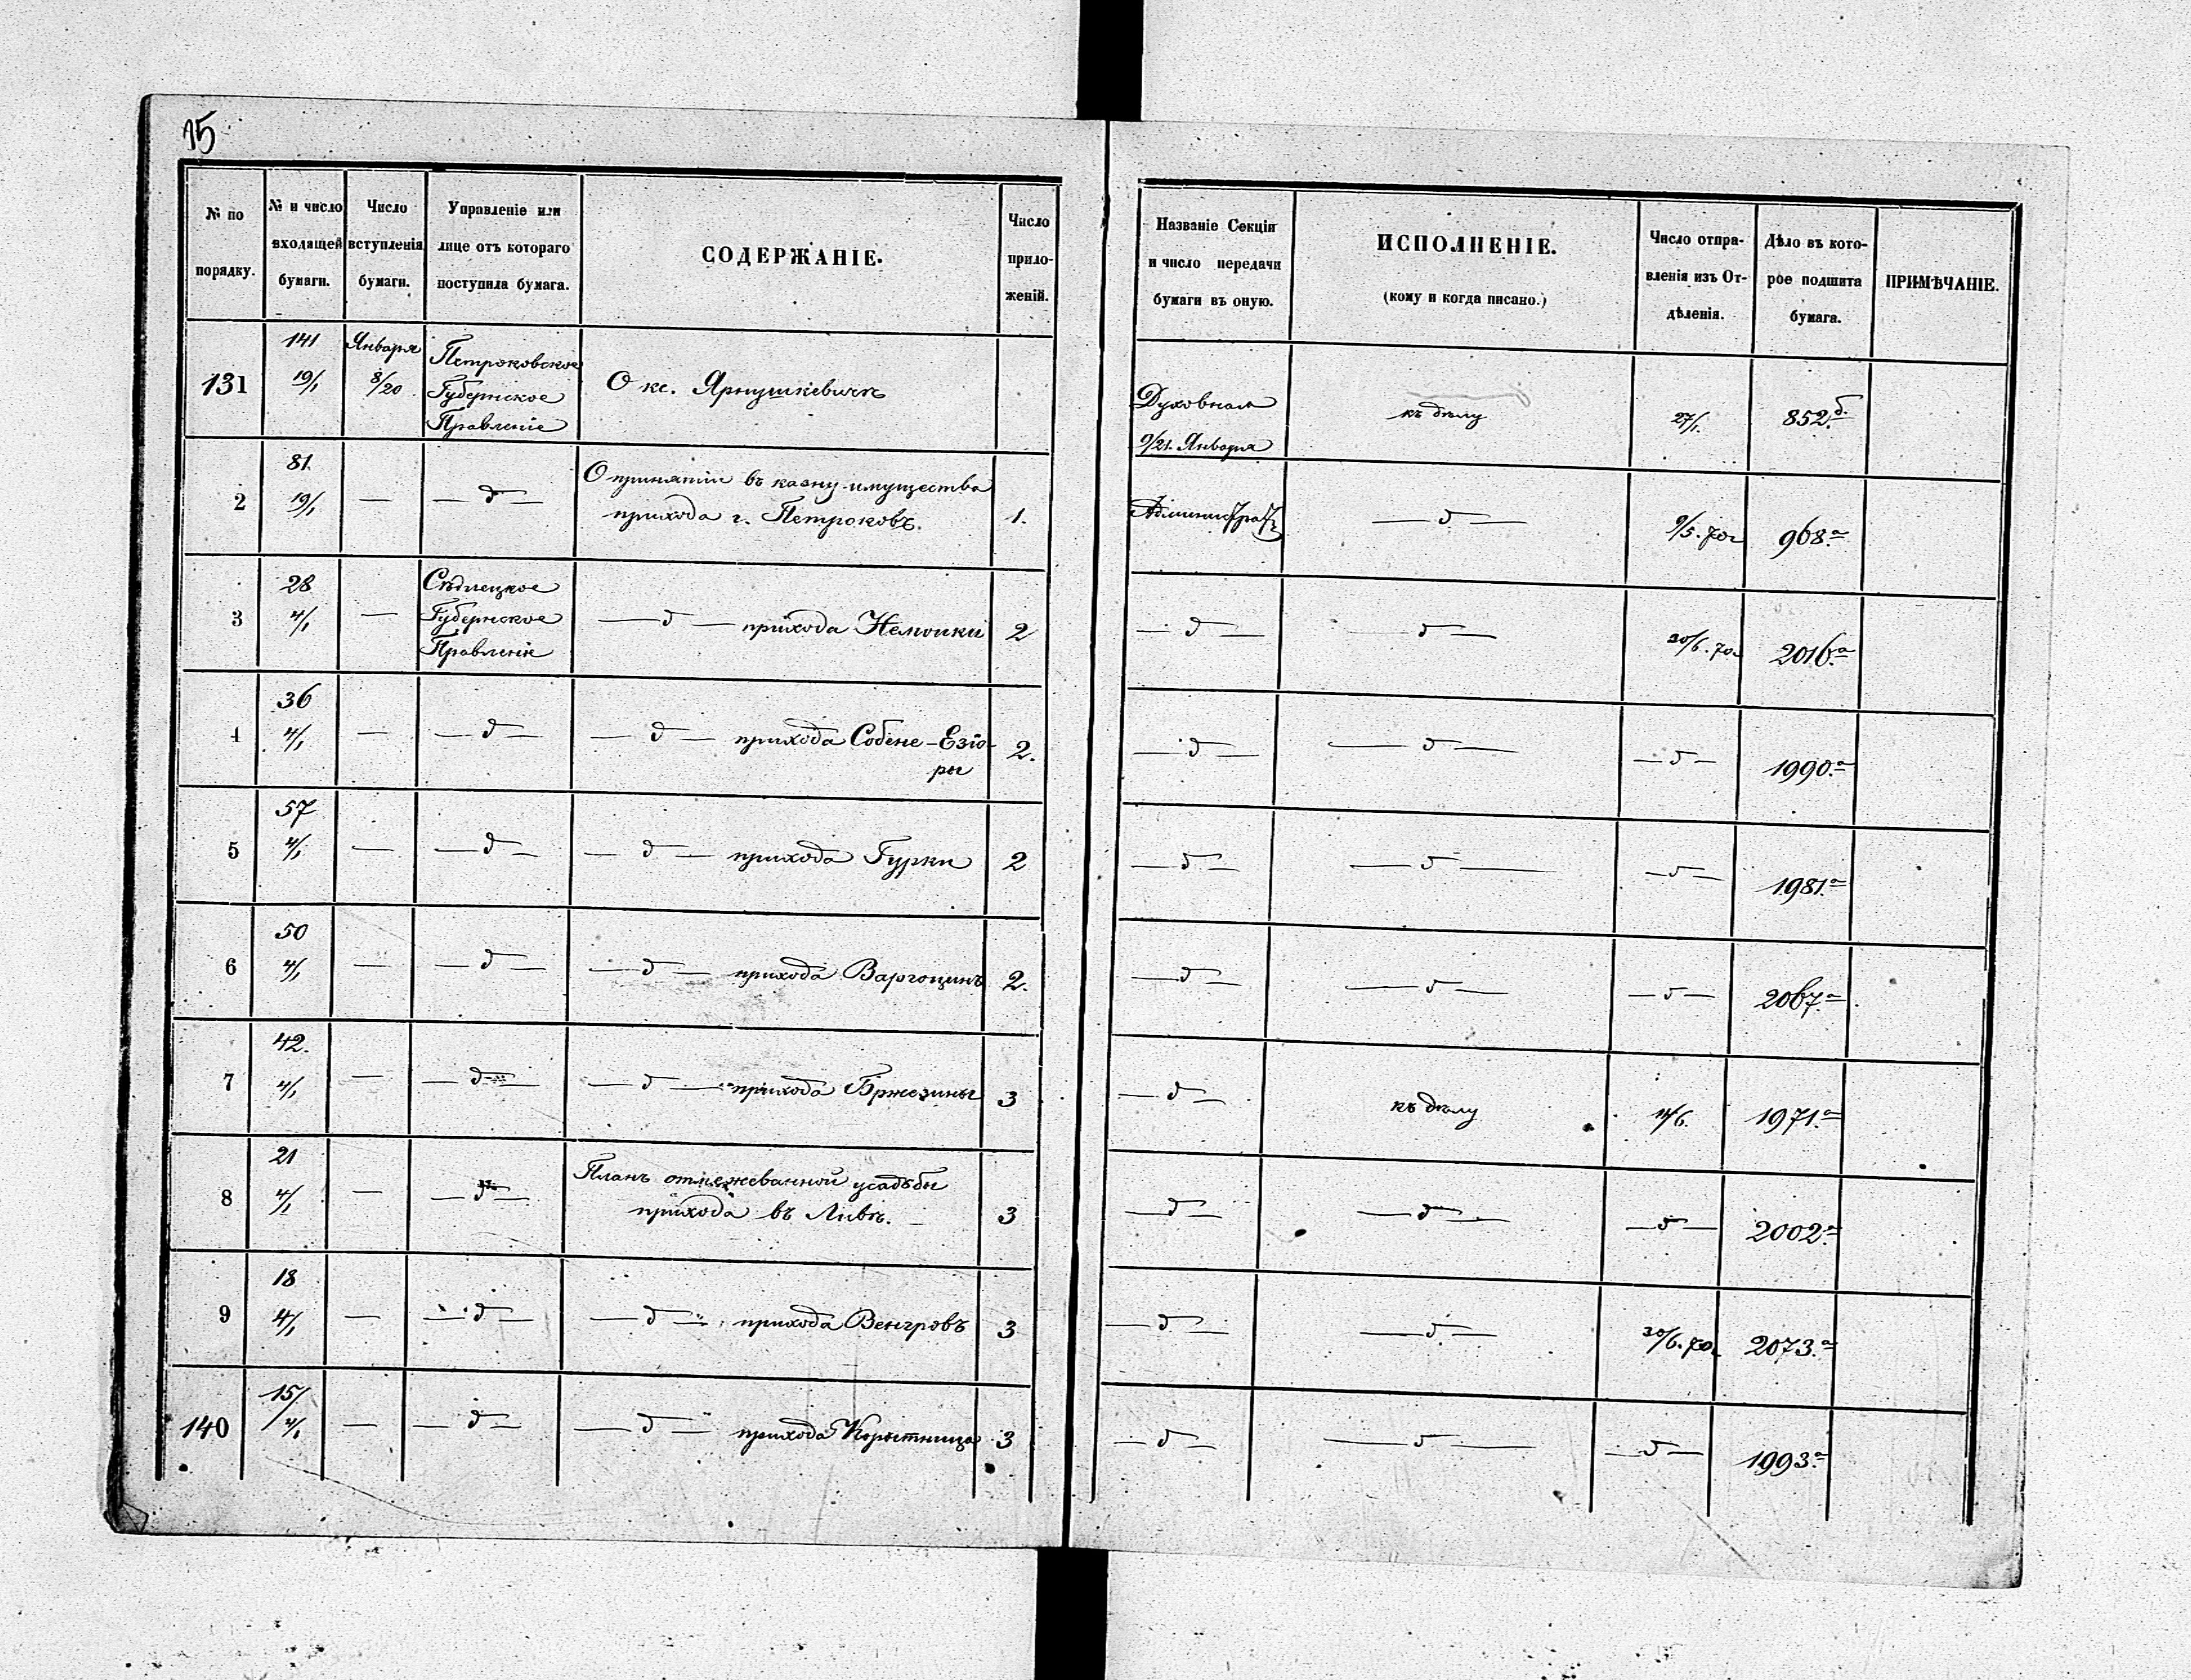 15
№ по порядку. | № и число входящей бумаги. | Число вступленія бумаги. | Управленіе или лице отъ котораго поступила бумага. | СОДЕРЖАНІЕ. | Число приложеній. | Названіе Секціи и число передачи бумаги въ оную. | ИСПОЛНЕНІЕ. (кому и когда писано.) | Число отправленія изъ Отдѣленія. | Дѣло въ которое подшита бумага. | ПРИМѢЧАНІЕ.
131 | 141 19/1 | Января 8/20 | Петроковское Губернское Правленіе | О кс. Ярнушкевичѣ | | Духовная 9/21 Января | къ дѣлу | 27/1. | 852.б.
2 | 81. 19/1 | — | — д — | О принятіи въ казну имущества прихода г. Петроковъ. | 1. | | — д — | 9/5. 70г | 968.а
3 | 28 4/1 | — | Сѣдлецкое Губернское Правленіе | — д — прихода Немойки | 2 | — д — | — д — | 30/6. 70г | 2016.а
4 | 36 4/1 | — | — д — | — д — прихода Собене-Езіоры | 2. | — д — | — д — | — д — | 1990.а
5 | 57 4/1 | — | — д — | — д — прихода Гурки | 2 | — д — | — д — | — д — | 1981.а
6 | 50 4/1 | — | — д — | — д — прихода Варгоцинъ | 2. | — д — | — д — | — д — | 2067.а
7 | 42. 4/1 | — | — д — | — д — прихода Бржезины | 3 | — д — | къ дѣлу | | 1971.а
8 | 21 4/1 | — | — д — | Планъ отмежеванной усадьбы прихода въ Ливѣ. | 3 | — д — | — д — | — д — | 2002.а
9 | 18 4/1 | — | — д — | — д — прихода Венгровъ | 3 | — д — | — д — | 30/6. 70г. | 2073.а
140 | 15/ 4/1 | — | — д — | — д — прихода Корытница | 3 | — д — | — д — | — д — | 1993.а